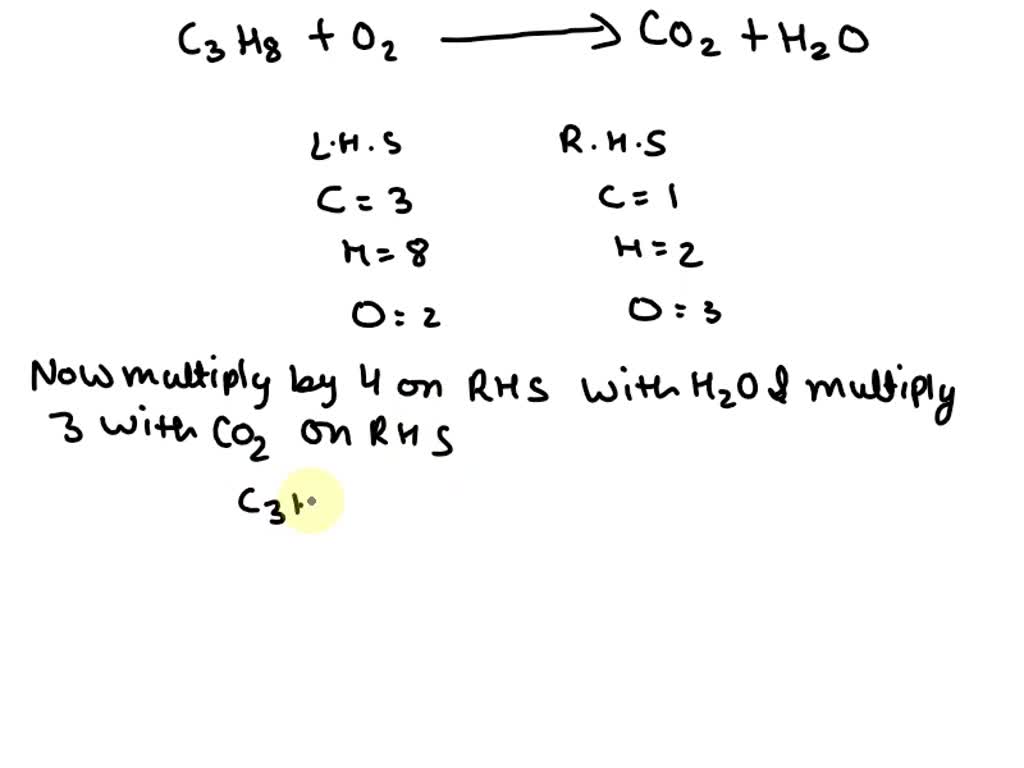 C₃H₈ + O₂ ⟶ CO₂ + H₂O
L.H.S R.H.S
C = 3 C = 1
H = 8 H = 2
O = 2 O = 3
Now multiply by 4 on RHS with H₂O & multiply
3 with CO₂ on RHS
C₃